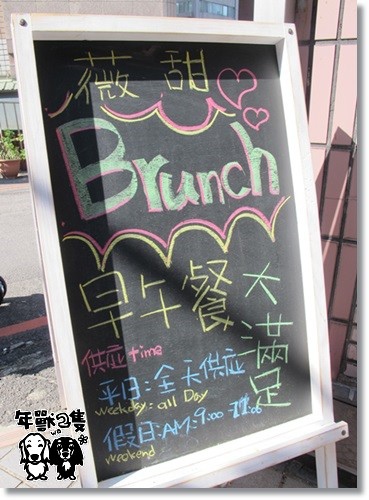 薇甜
Brunch
早午餐
大滿足
供应time
平日:全天供应
weekday:all Day
假日:AM:9:00-17:00
weekend
年獸2隻